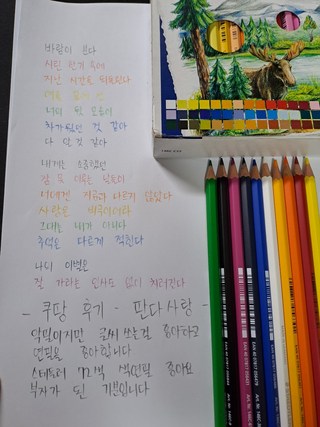 바람이 분다
시린 한기 속에
지난 시간을 되돌린다
여름 끝에 선
너의 뒷 모습이
차가웠던 것 같다
다 알 것 같다
내게는 소중했던
잠 못 이루던 날들이
너에겐 지금과 다르지 않았다
사랑은 비극이어라
그대는 내가 아니다
추억은 다르게 적힌다
나의 이별은
잘 가라는 인사도 없이 치러진다
- 쿠팡 후기 - 판다사탕 -
악필이지만 글씨 쓰는걸 좋아하고
연필을 좋아합니다
스테들러 72색 색연필 좋아요
부자가 된 기분입니다